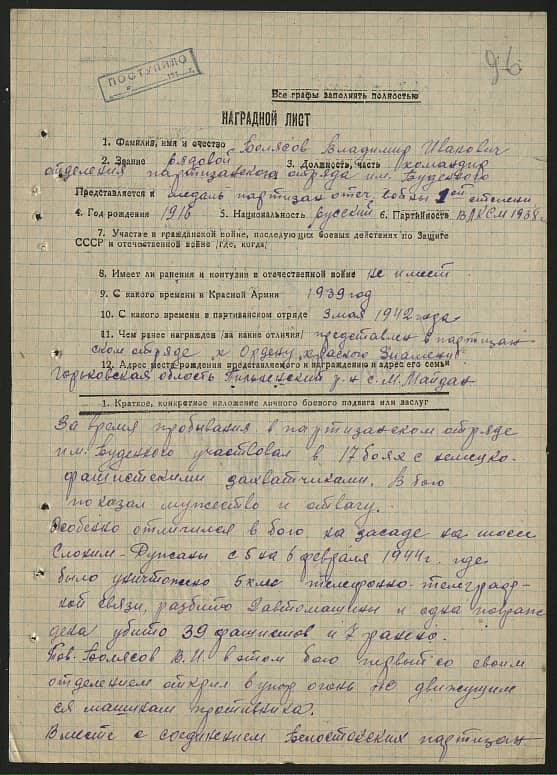 96
ПОСТУПИЛО
Все графы заполнять полностью
НАГРАДНОЙ ЛИСТ
1. Фамилия, имя и очество Болясов Владимир Иванович
2. Звание рядовой 3. Должность, часть командир
отделения партизанского отряда им. Буденого
Представляется к медаль партизан отеч. войны 1ой степени
4. Год рождения 1916 5. Национальность русский 6. Партийность ВЛКСМ 1938г
7. Участие в гражданской войне, последующих боевых действиях по Защите
СССР и отечественной войне /где, когда/
8. Имеет ли ранения и контузии в отечественной войне не имеет
9. С какого времени в Красной Армии 1939 год
10. С какого времени в партизанском отряде 3 мая 1942 года
11. Чем ранее награжден /за какие отличия/ представлен в партизан
ском отряде к Ордену красного Знамени
12. Адрес места рождения представляемого к награждению и адрес его семьи
Горьковская область р-н с. М. Майдан
1. Краткое, конкретное изложение личного боевого подвига или заслуг
За время пробывания в партизанском отряде
им. Буденого участвовал в 17 боях с немецко-
фашистскими захватчиками. В бою
показал мужество и отвагу.
Особенно отличился в бою на засаде на шоссе
Слоним-Ружаны с 5 на 6 февраля 1944г. где
было уничтожено 5 км телефонно-телеграф-
ной связи, разбито 2 автомашины и одна повреж
дена убито 39 фашистов и 7 ранено.
Тов. Болясов В.И. в этом бою первый со своим
отделением открил в упор огонь по движущим
ся машинам противника.
Вместе с соединением Белостокских партизан